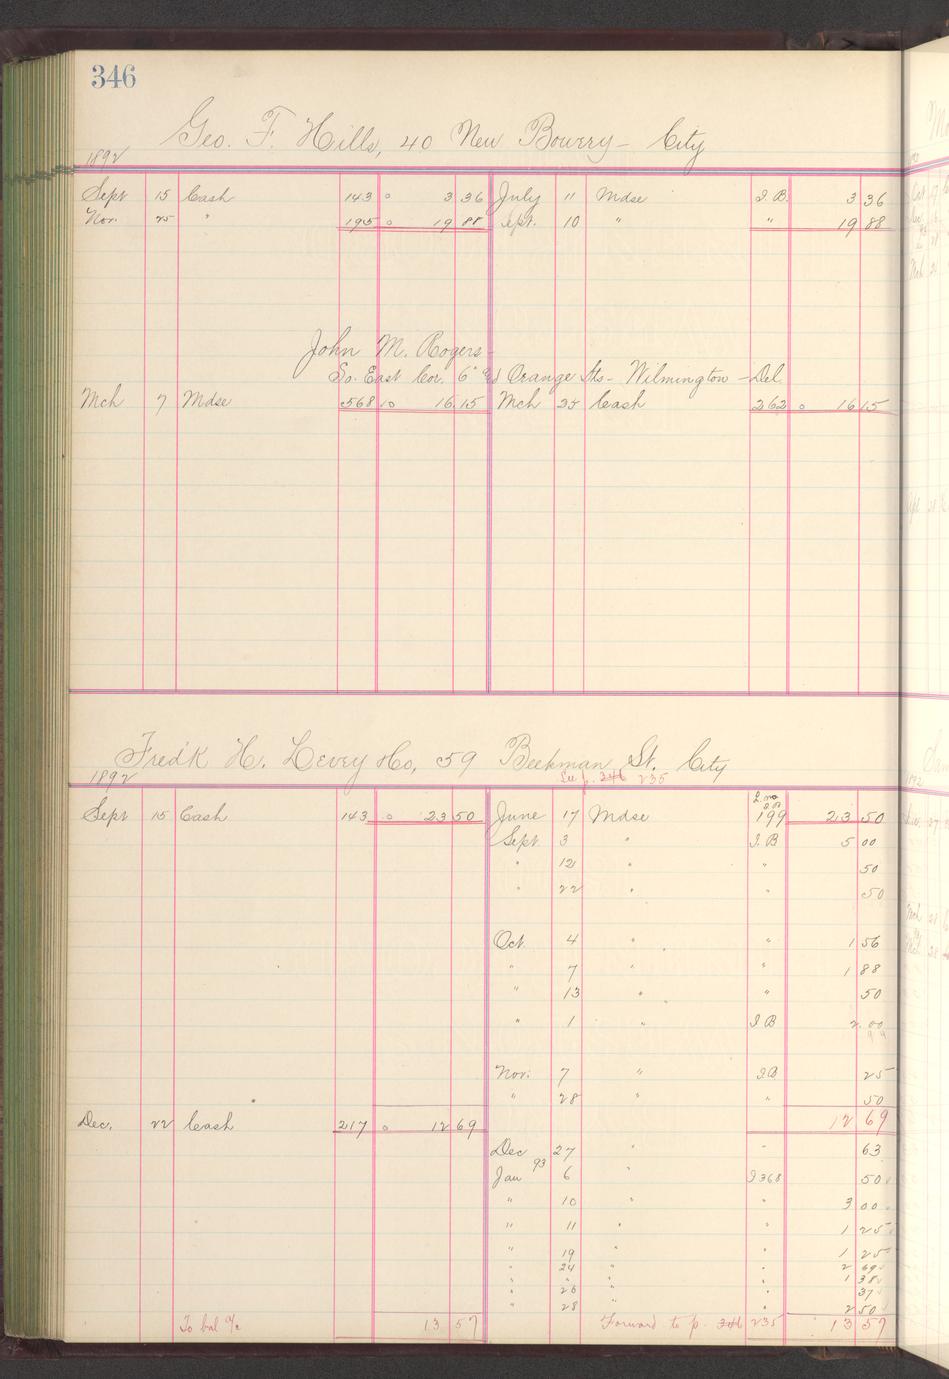 346
Geo. F. Hills, 40 New Bowery - City
1892
Sept 15 Cash 143 0 3 36 July 11 Mdse I.B. 3 36
Nov. 25 " 195 0 19 88 Sept. 10 " " 19 88
John M. Rogers -
So. East Cor. 6" & Orange Sts - Wilmington - Del.
Mch 7 Mdse 568 10 16 15 Mch 25 Cash 262 0 16 15
Fred'k H. Levey & Co, 59 Beekman St. City
1892 See p. 346 235
Sept 15 Cash 143 0 23 50 June 17 Mdse 199 23 50
Sept 3 " I.B 5 00
" 12 " " 50
" 22 " " 50
Oct. 4 " " 1 56
" 7 " " 1 88
" 13 " " 50
" 1 " I B 2 00
Nov. 7 " I.B 25
" 28 " " 50
12 69
Dec. 22 Cash 217 0 12 69
Dec 27 " " 63
Jan 93 6 " I 368 50
" 10 " " 3 00
" 11 " " 1 25
" 19 " " 1 25
" 24 " " 2 69
" " " " 1 38
" 26 " " 37
" 28 " " 2 50
To bal a/c 13 57 Forward to p. 346 235 13 57